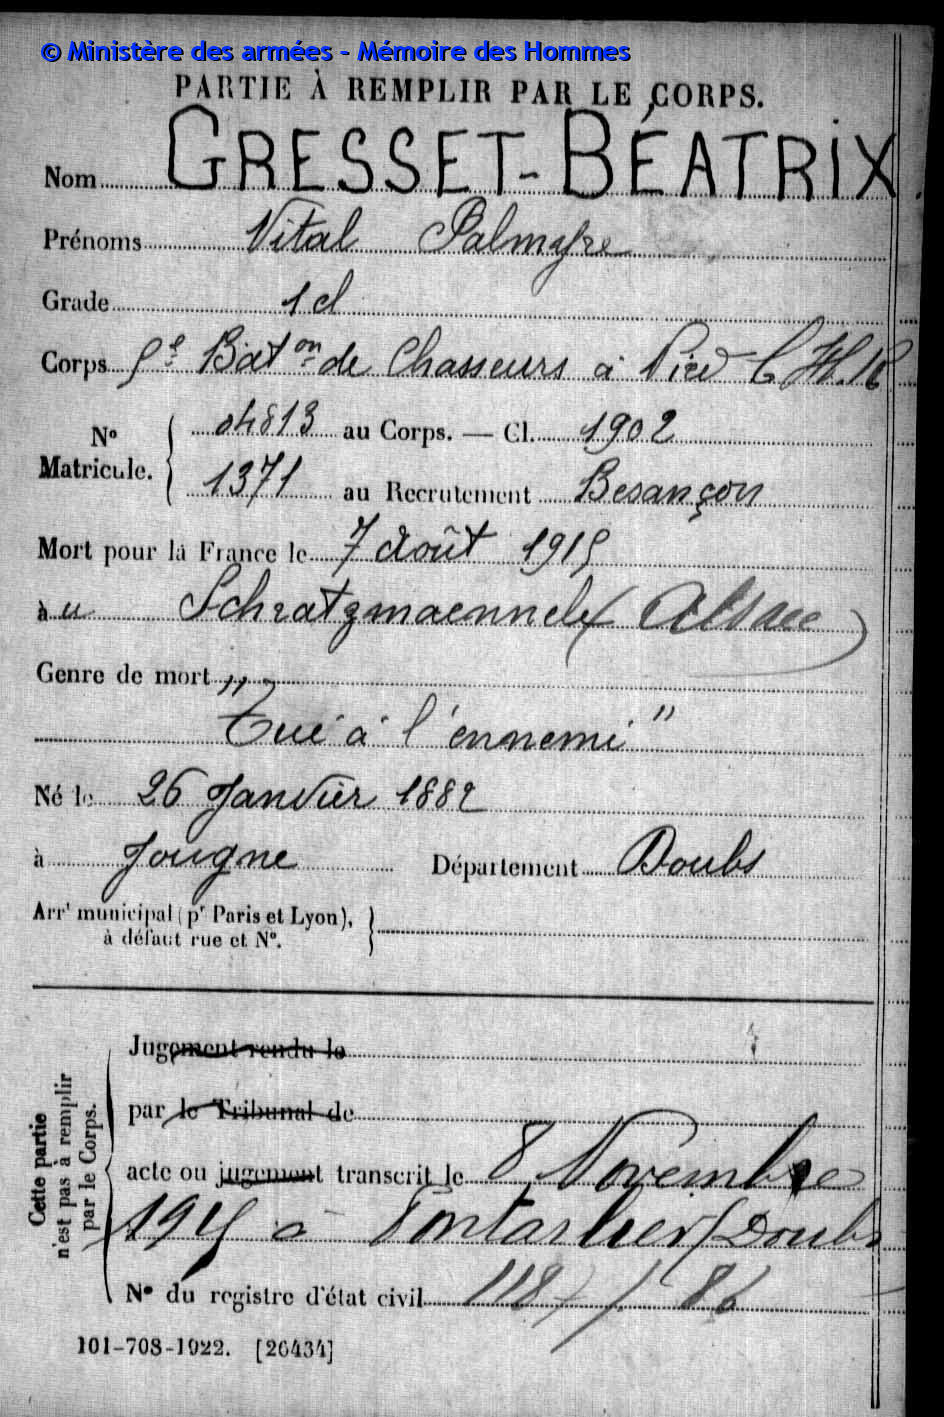 © Ministère des armées - Mémoire des Hommes
PARTIE À REMPLIR PAR LE CORPS.
Nom GRESSET-BÉATRIX
Prénoms Vital Palmyre
Grade 1 cl
Corps 5e Bat on de Chasseurs à Pied
N° Matricule. 04813 au Corps. — Cl. 1902
1371 au Recrutement Besançon
Mort pour la France le 7 Août 1915
à u Schratzmaennele (Alsace)
Genre de mort
"Tué à l'ennemi"
Né le 26 Janvier 1882
à Jougne Département Doubs
Arrt municipal (pr Paris et Lyon),
à défaut rue et N°.
Cette partie
n'est pas à remplir
par le Corps.
Jugement rendu le
par le Tribunal de
acte ou jugement transcrit le 8 Novembre
1915 à Pontarlier (Doubs
N° du registre d'état civil 1187 / 86
101-708-1922. [26434]